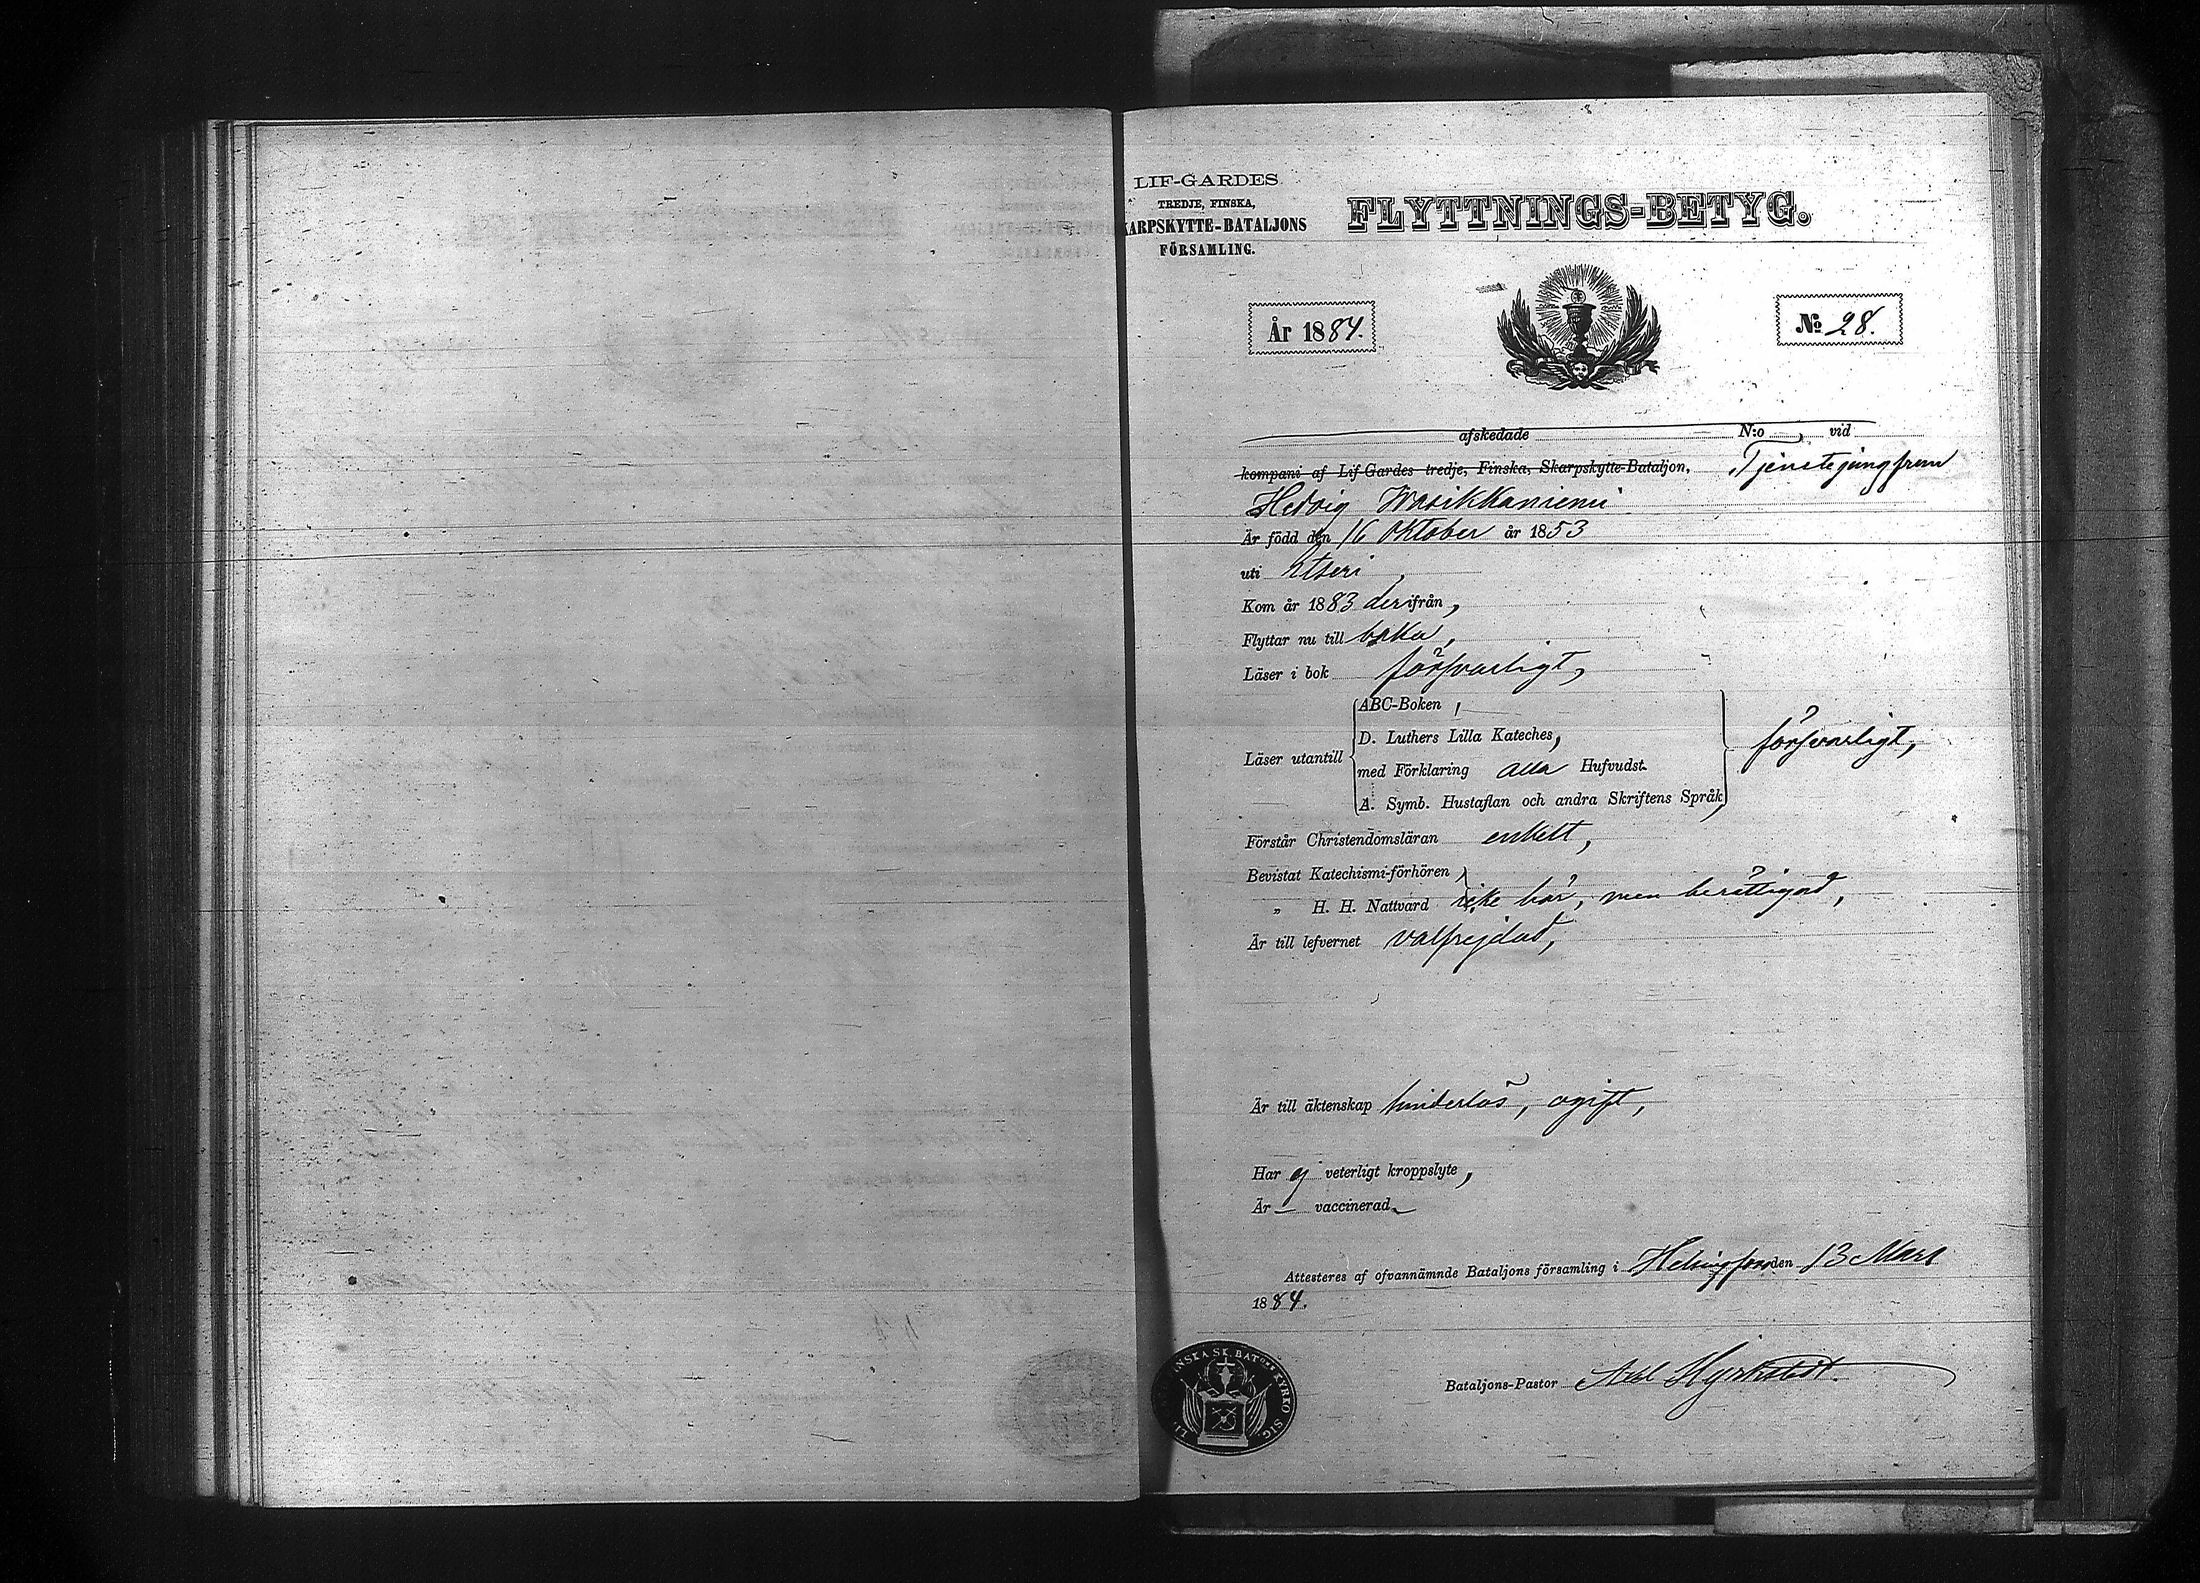 LIF-GARDES
TREDJE, FINSKA,
KARPSKYTTE-BATALJONS
FÖRSAMLING.
FLYTTNINGS-BETYG.
År 1884.
№ 28.
afskedade N:o , vid
kompani af Lif-Gardes tredje, Finska, Skarpskytte-Bataljon, Tjenstejungfrun
Hedvig Warikkaniemi
Är född den 16 Oktober år 1853
uti Etseri,
Kom år 1883 derifrån,
Flyttar nu till baka,
Läser i bok försvarligt,
Läser utantill
ABC-Boken,
D. Luthers Lilla Kateches,
med Förklaring alla Hufvudst.
A. Symb. Hustaflan och andra Skriftens Språk,
försvarligt,
Förstår Christendomsläran enkelt,
Bevistat Katechismi-förhören
„ H. H. Nattvard icke här, men berättigad,
Är till lefvernet välfrejdad,
Är till äktenskap hinderlös, ogift,
Har ej veterligt kroppslyte,
Är — vaccinerad
Attesteres af ofvannämnde Bataljons församling i Helsingfors den 13 Mars
1884.
Bataljons-Pastor Axel Hyrkstedt.
INSKA SK. BAT:ONS KYRKO SIG.